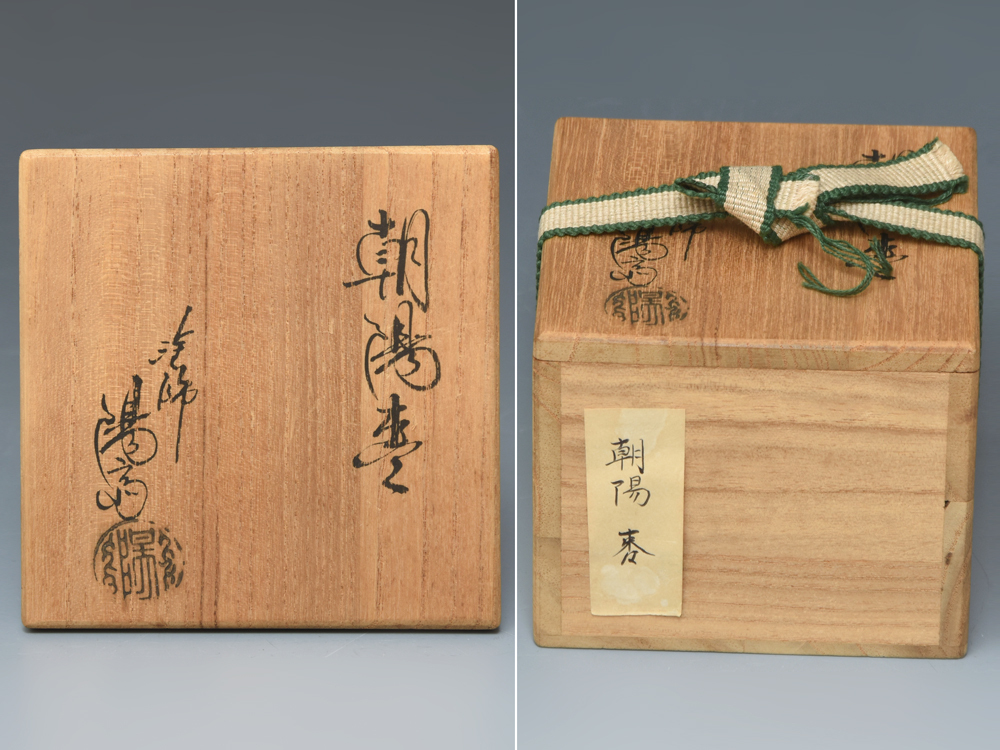 朝陽棗
塗師
陽斎
朝陽 棗